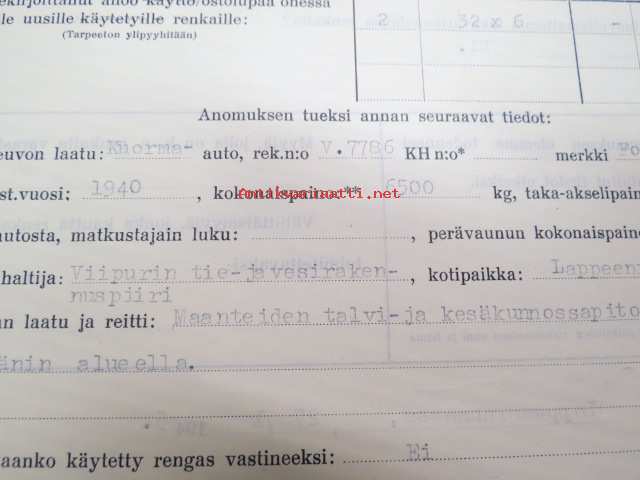 allekirjoittanut anoo käyttö/ostolupaa ohessa
lle uusille käytetyille renkaille: 2 32 x 6 -
(Tarpeeton ylipyyhitään)
Anomuksen tueksi annan seuraavat tiedot:
euvon laatu: Kuorma- auto, rek.n:o V.7786 KH n:o* merkki
st.vuosi: 1940 , kokonaispaino: ** 6500 kg, taka-akselipain
fontakspanasotti.net
utosta, matkustajain luku: , perävaunun kokonaispaino
haltija: Viipurin tie- ja vesiraken- , kotipaikka: Lappeen
nuspiiri
n laatu ja reitti: Maanteiden talvi- ja kesäkunnossapito
änin alueella.
aanko käytetty rengas vastineeksi: Ei